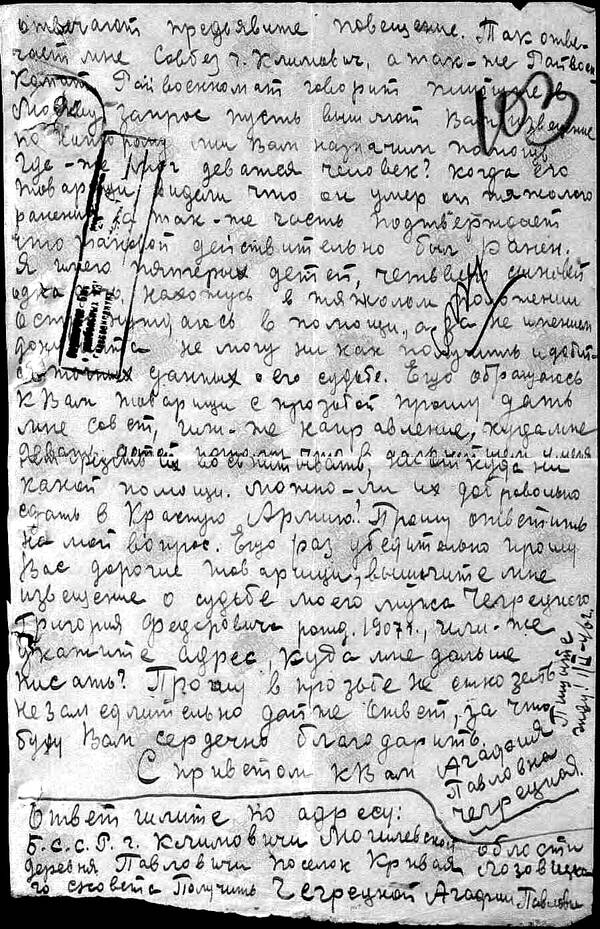 отвечают предьявите повещение. Так отве-
чает мне Совбез г. Климович, а так-же Райвоен
Комат Райвоенкомат говорит пишите в
Москву запрос пусть вышлют Вам извещение
по которому мы Вам назначим помощь
Где-же мог деватся человек? когда его
товарищи видели что он умер от тяжолого
ранения, а так-же часть подтверждает
что такой действительно был ранен.
Я имею пятерых детей, четверо сыновей
одна нахожусь в тяжолом положении
нуждаюсь в помощи, а за не имением
не могу ни как получить и добит-
точных данных о его судьбе. Ещо обращаюсь
к Вам товарищи с прозьбой прошу дать
мне совет, или-же направление, куда мне
девать детей потому что в дальнейшем у меня
нет средств их воспитывать, ни откуда ни
какой помощи. Можно-ли их добровольно
сдать в Красную Армию! Прошу ответить
на мой вопрос. Ещо раз убедительно прошу
Вас дорогие товарищи, вышлите мне
извещение о судьбе моего мужа Чегрецкого
Григория Федоровича рожд. 1907 г., или-же
укажите адрес, куда мне дальше
писать? Прошу в прозьбе не отказать
незамедлительно дайте ответ, за что
буду Вам сердечно благодарить.
С приветом к Вам Агафия
Павловна
Чегрецкая.
Пишите
жду!
103
Ответ шлите по адресу:
Б.С.С.Р. г. Климовичи Могилевской области
деревня Павловичи поселок Кривая Лозовицка
го сковета Получить Чегрецкой Агафии Павловне